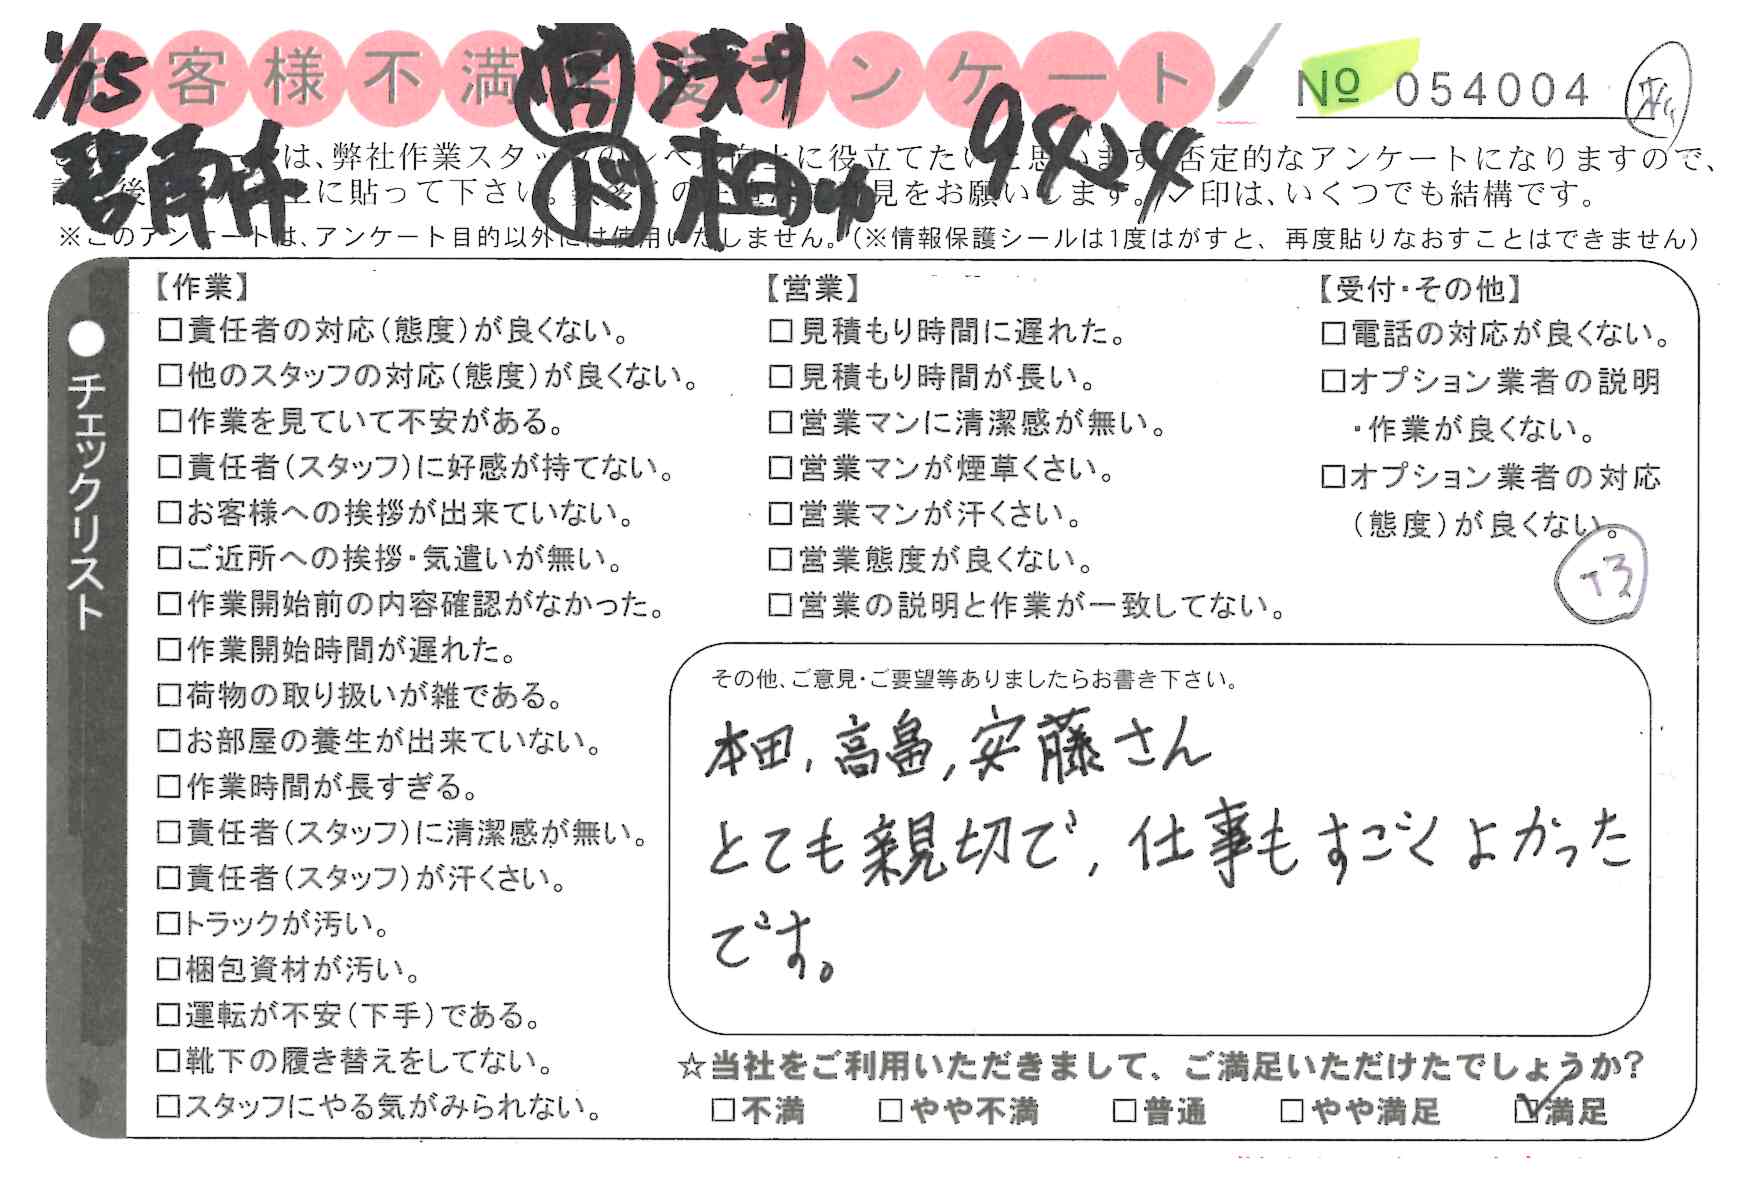 1/15
お客様不満足度アンケート
浅井
№ 054004
碧南市
ド 本田
9424
は、弊社作業スタッフのレベル向上に役立てたいと思います。否定的なアンケートになりますので、
上に貼って下さい。見をお願いします。✓印は、いくつでも結構です。
※このアンケートは、アンケート目的以外には使用いたしません。（※情報保護シールは1度はがすと、再度貼りなおすことはできません）
●チェックリスト
【作業】
□責任者の対応（態度）が良くない。
□他のスタッフの対応（態度）が良くない。
□作業を見ていて不安がある。
□責任者（スタッフ）に好感が持てない。
□お客様への挨拶が出来ていない。
□ご近所への挨拶・気遣いが無い。
□作業開始前の内容確認がなかった。
□作業開始時間が遅れた。
□荷物の取り扱いが雑である。
□お部屋の養生が出来ていない。
□作業時間が長すぎる。
□責任者（スタッフ）に清潔感が無い。
□責任者（スタッフ）が汗くさい。
□トラックが汚い。
□梱包資材が汚い。
□運転が不安（下手）である。
□靴下の履き替えをしてない。
□スタッフにやる気がみられない。
【営業】
□見積もり時間に遅れた。
□見積もり時間が長い。
□営業マンに清潔感が無い。
□営業マンが煙草くさい。
□営業マンが汗くさい。
□営業態度が良くない。
□営業の説明と作業が一致してない。
【受付・その他】
□電話の対応が良くない。
□オプション業者の説明
・作業が良くない。
□オプション業者の対応
（態度）が良くない。
T3
その他、ご意見・ご要望等ありましたらお書き下さい。
本田，高畠，安藤さん
とても親切で，仕事もすごくよかった
です。
☆当社をご利用いただきまして、ご満足いただけたでしょうか?
□不満 □やや不満 □普通 □やや満足 ☑満足